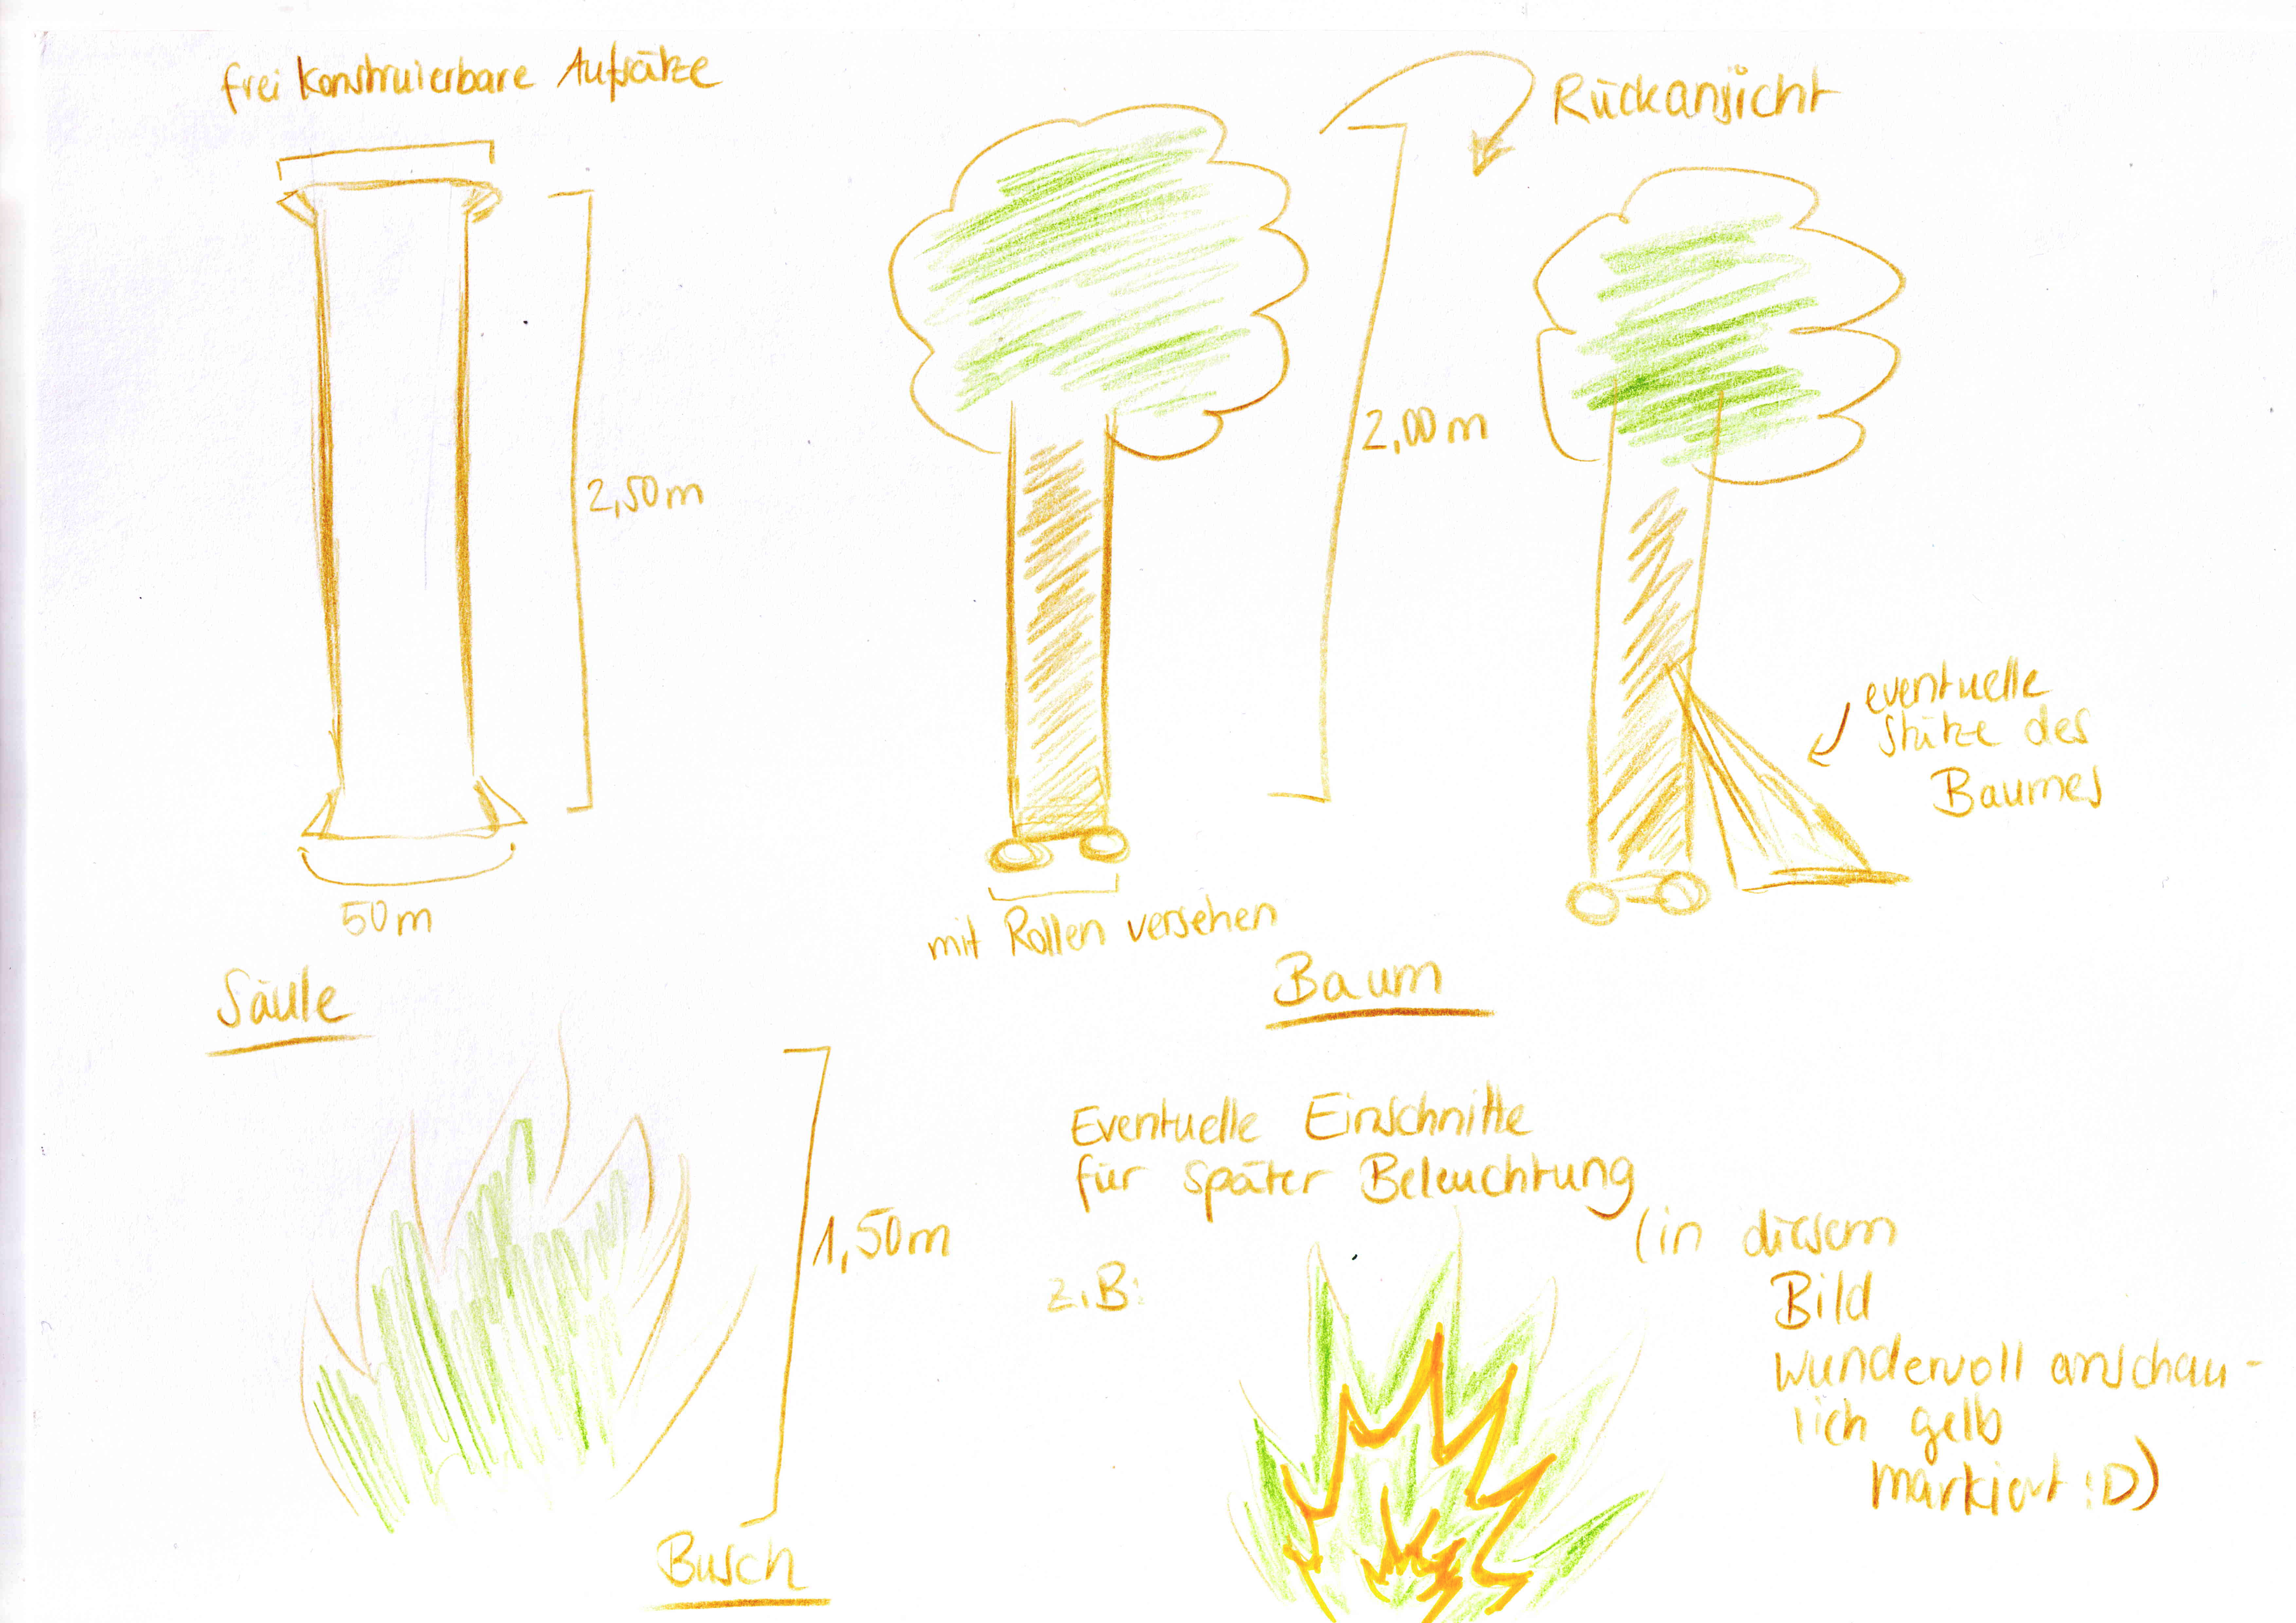 frei konstruierbare Aufsätze
2,50m
50m
Säule
2,00m
mit Rollen versehen
Baum
Rückansicht
eventuelle
Stütze des
Baumes
1,50m
Busch
Eventuelle Einschnitte
für später Beleuchtung
z.B:
(in diesem
Bild
wundervoll anschau-
lich gelb
markiert :D)